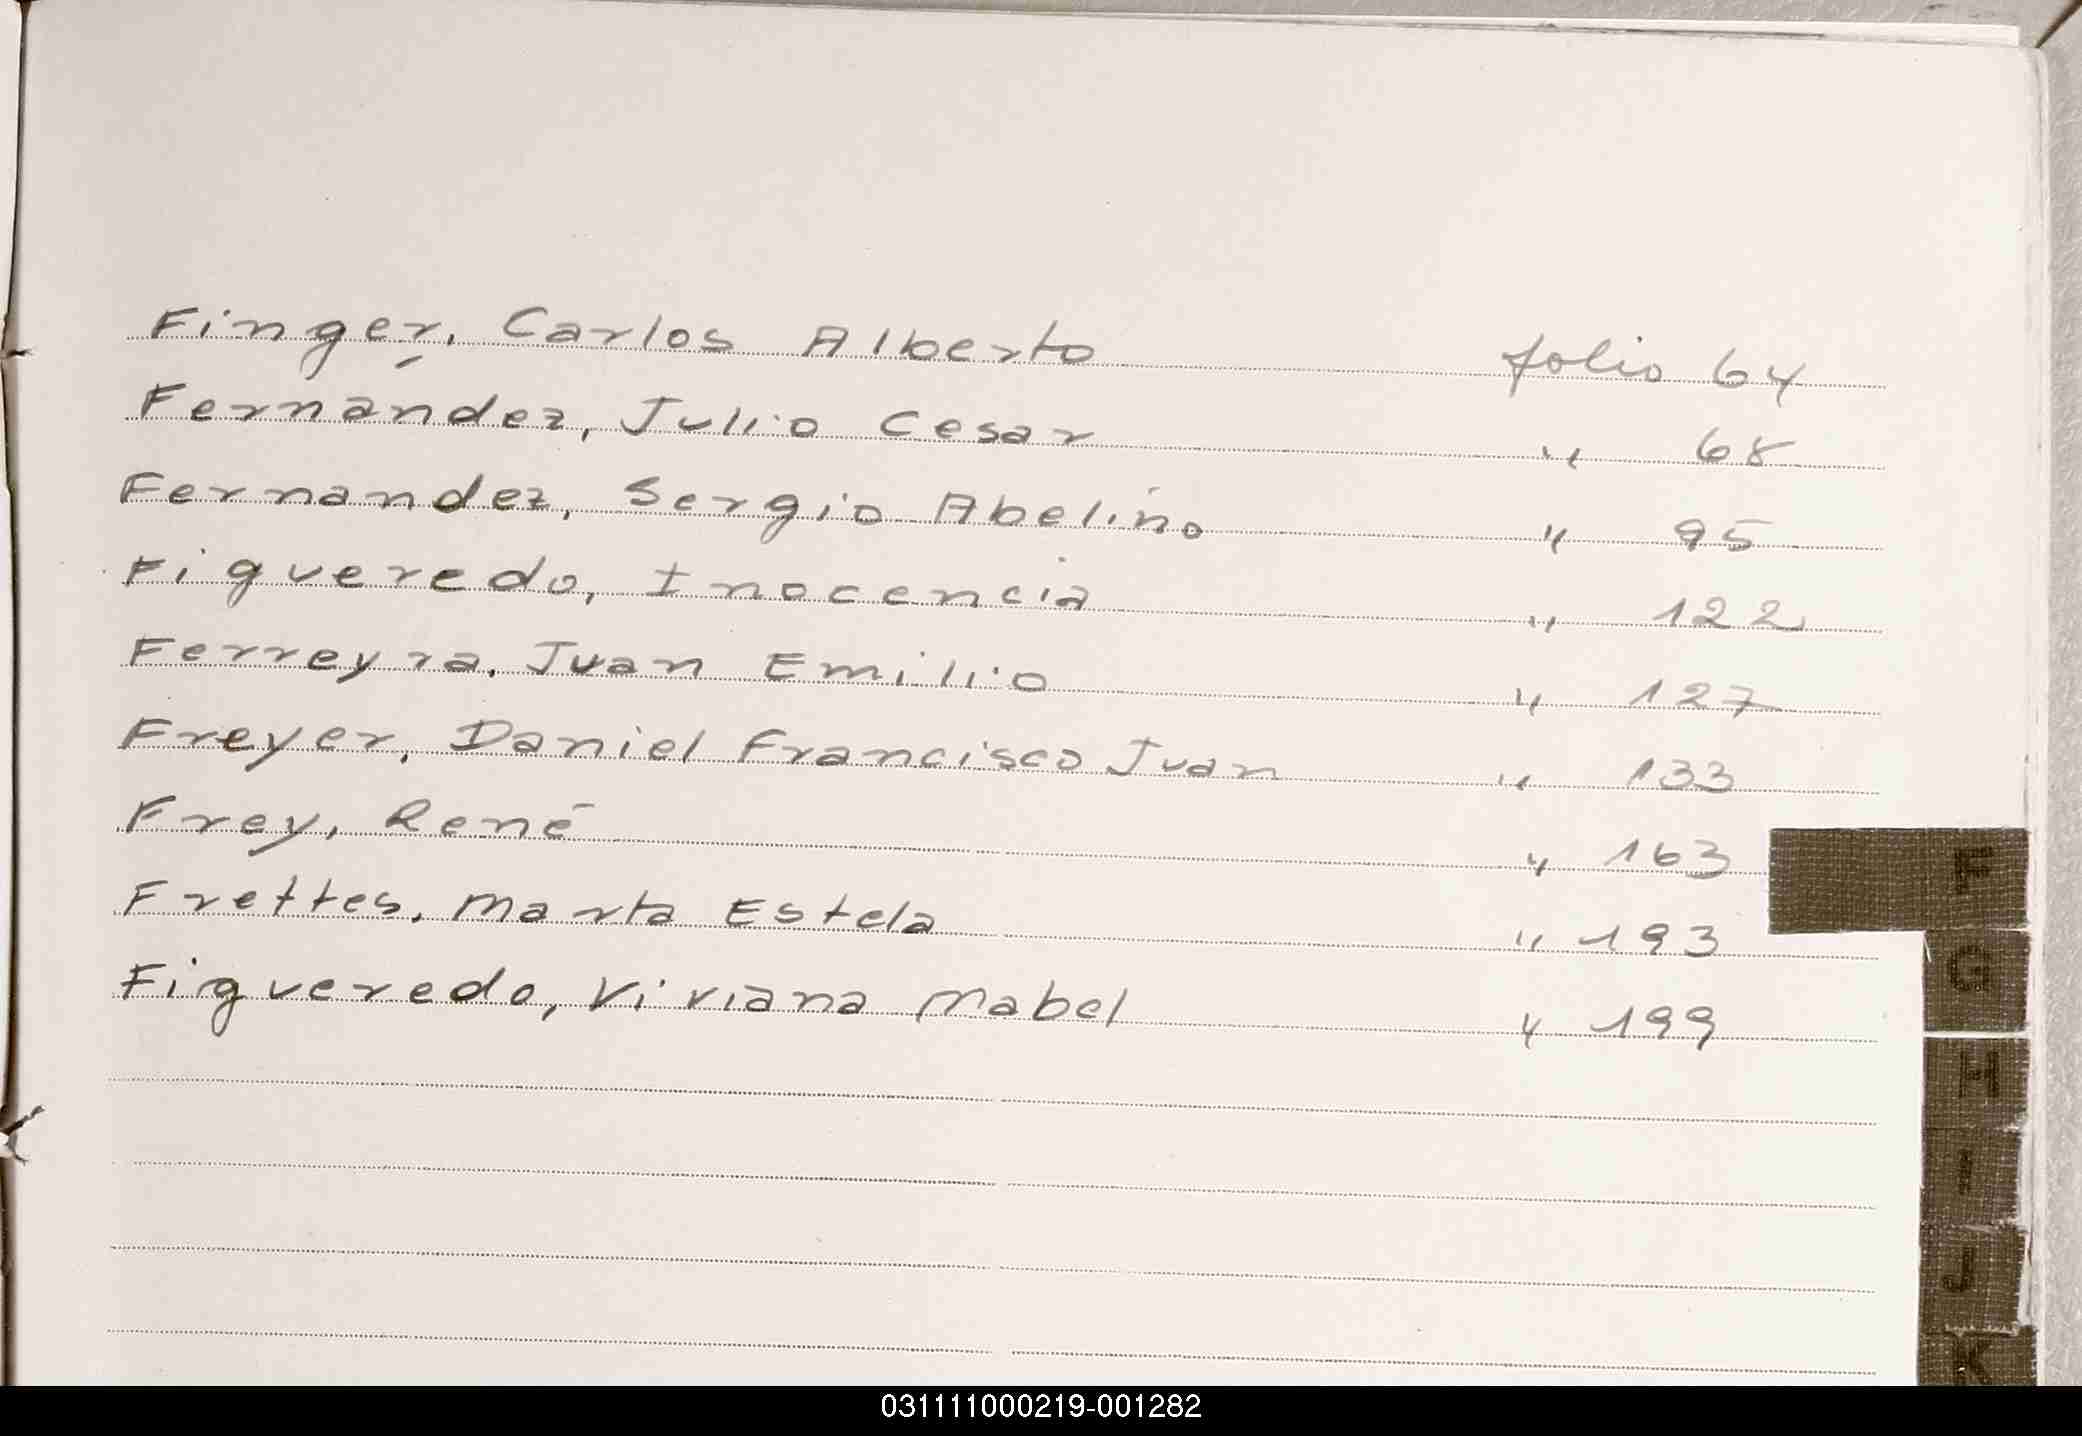 Finger, Carlos Alberto folio 64
Fernández, Julio Cesar " 68
Fernandez, Sergio Abelino " 95
Figueredo, Inocencia " 122
Ferreyra, Juan Emilio " 127
Freyer, Daniel Francisco Juan " 133
Frey, René " 163
F
Frettes, Marta Estela " 193
G
Figueredo, Viviana Mabel " 199
H
I
J
K
031111000219-001282